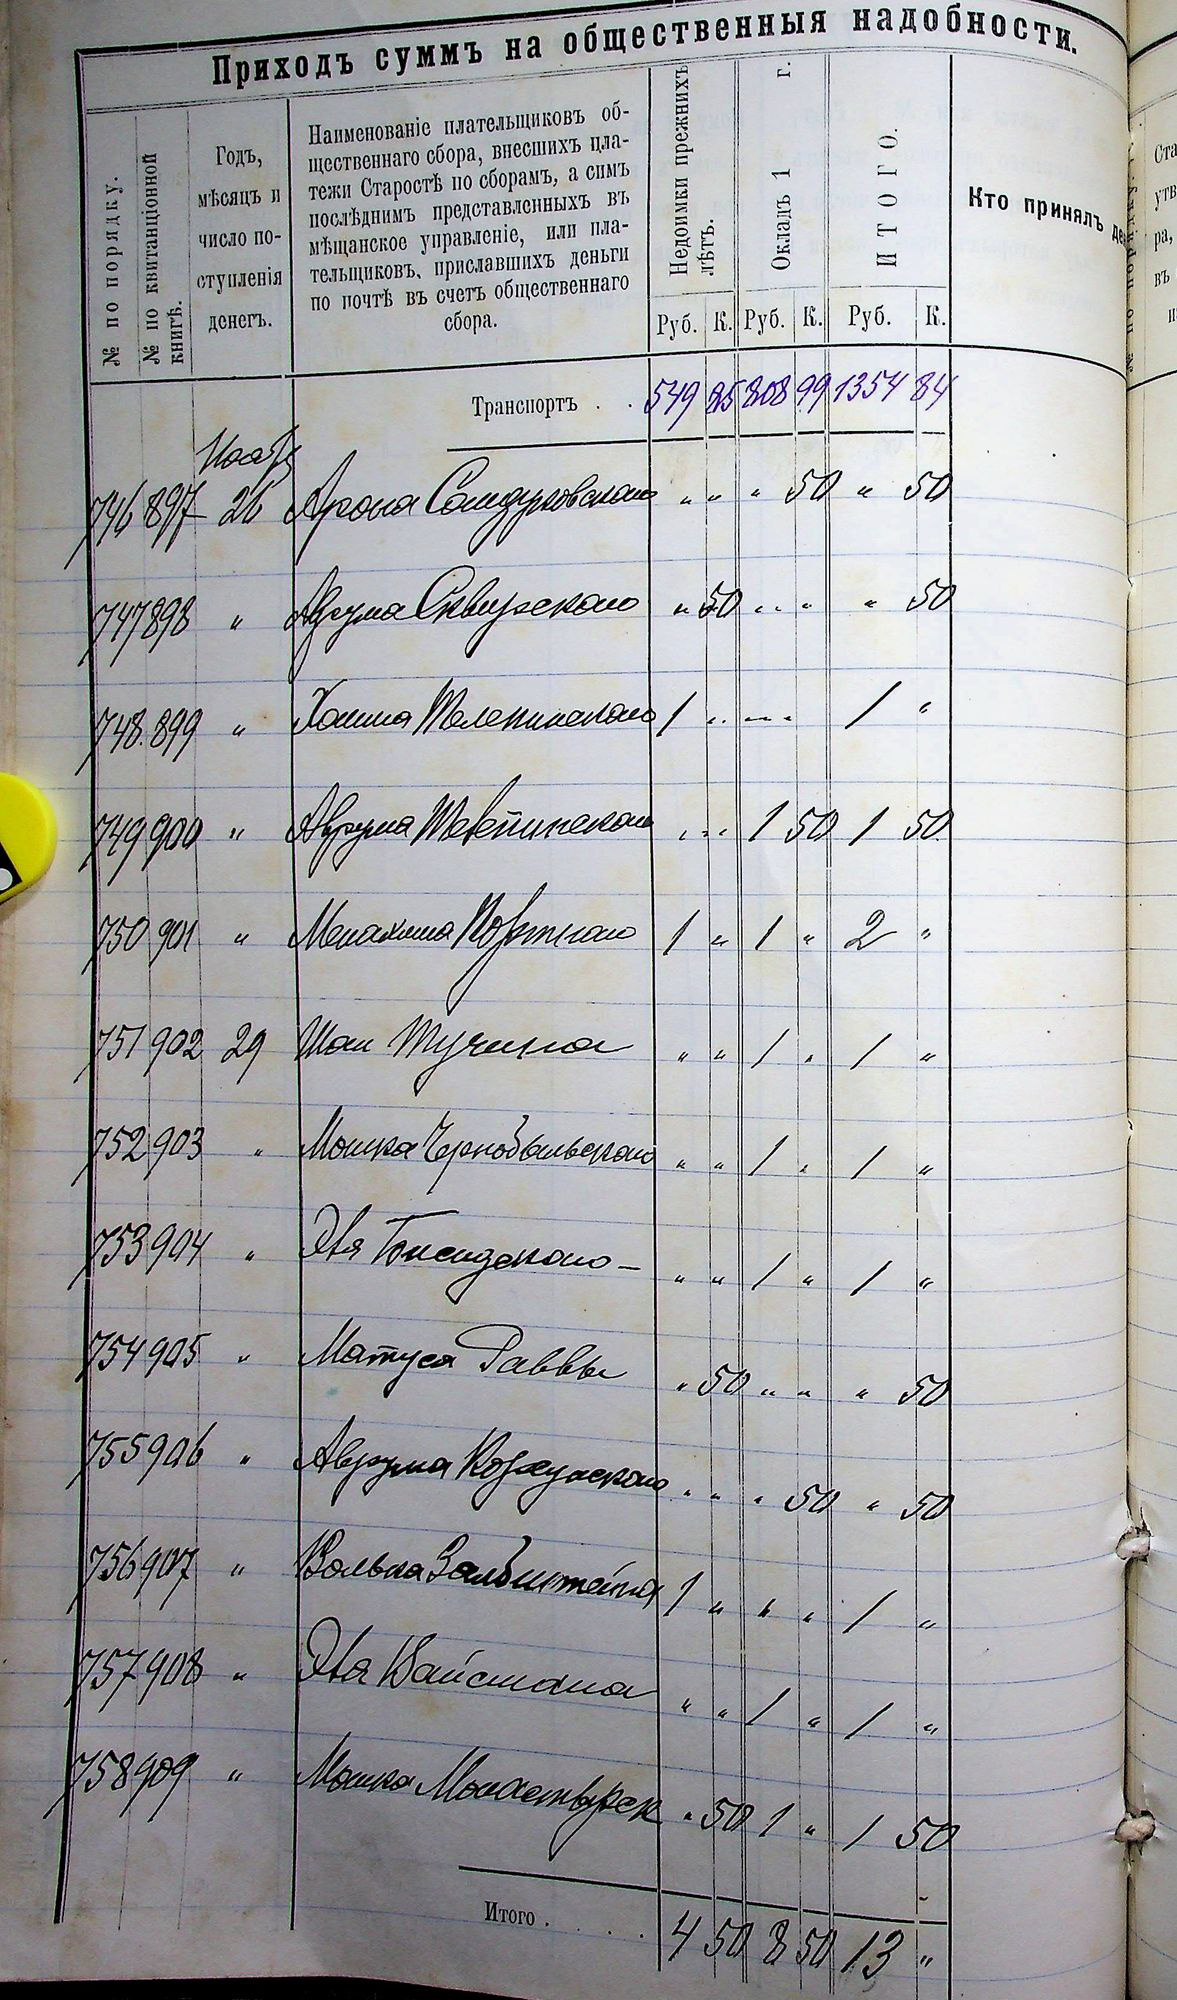 Приходъ суммъ на общественныя надобности.
№ по порядку.
№ по квитанціонной книгѣ.
Годъ,
мѣсяцъ и
число по-
ступленія
денегъ.
Наименованіе плательщиковъ об-
щественнаго сбора, внесшихъ пла-
тежи Старостѣ по сборамъ, а симъ
послѣднимъ представленныхъ въ
мѣщанское управленіе, или пла-
тельщиковъ, приславшихъ деньги
по почтѣ въ счетъ общественнаго
сбора.
Недоимки прежнихъ
лѣтъ.
Окладъ 1 г.
ИТОГО.
Кто принялъ де
Руб. К. Руб. К. Руб. К.
Транспортъ . . 549 85 808 99 1354 84
746 897 26 Арона " " " 50 " 50
747 898 " Аврума Сквирского " 50 " " " 50
748. 899 " Хаима Телепинского 1 " " " 1 "
749 900 " Аврума " " 1 50 1 50
750 901 " Менахима Портного 1 " 1 " 2 "
751 902 29 Шаи Тучина " " 1 " 1 "
752 903 " Мошка Чернобыльского " " 1 " 1 "
753 904 " " " 1 " 1 "
754 905 " Матуса Раввы " 50 " " " 50
755 906 " Аврума Корсунского " " " 50 " 50
756 907 " Волька Зальбштейна 1 " " " 1 "
757 908 " Вайсмана " " 1 " 1 "
758 909 " Мошка Монастырск " 50 1 " 1 50
Итого . . . 4 50 8 50 13 "